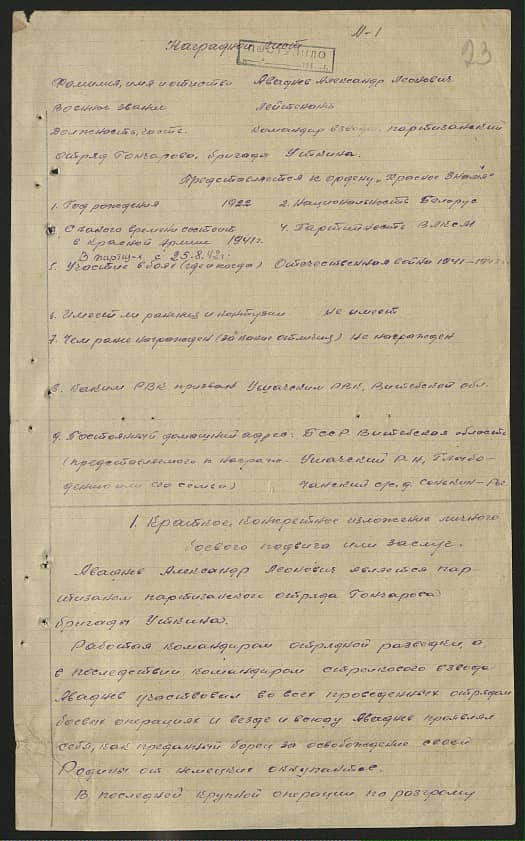 М-1
23
Наградной лист
Фамилия, имя и отчество Аваднев Александр Леонович
Военное звание Лейтенант
Должность, часть. Командир взвода, партизанский
отряд Гончарова, бригада Уткина.
Представляется к ордену „Красное Знамя"
1. Год рождения 1922 2. Национальность Белорус
С какого времени состоит 4. Партийность ВЛКСМ
в Красной Армии 1941 г.
В парт. с 25.8.42 г.
5. Участие в боях (где и когда) Отечественная война 1941-
6. Имеет ли ранения и контузии не имеет
7. Чем ранее награжден (за какие отличия) не награжден
8. Каким РВК призван Ушачским РВК, Витебской обл.
9. Постоянный домашний адрес: БССР Витебская область
(представляемого к награж- Ушачский р-н,
дению или его семьи)
1. Краткое, конкретное изложение личного
боевого подвига или заслуг.
Аваднев Александр Леонович является пар-
тизаном партизанского отряда Гончарова
бригады Уткина.
Работая командиром отрядной разведки, а
в последствии командиром стрелкового взвода
Аваднев участвовал во всех проведенных отрядом
боевых операциях и везде и всюду Аваднев проявлял
себя, как преданный борец за освобождение своей
Родины от немецких оккупантов.
В последней крупной операции по разгрому